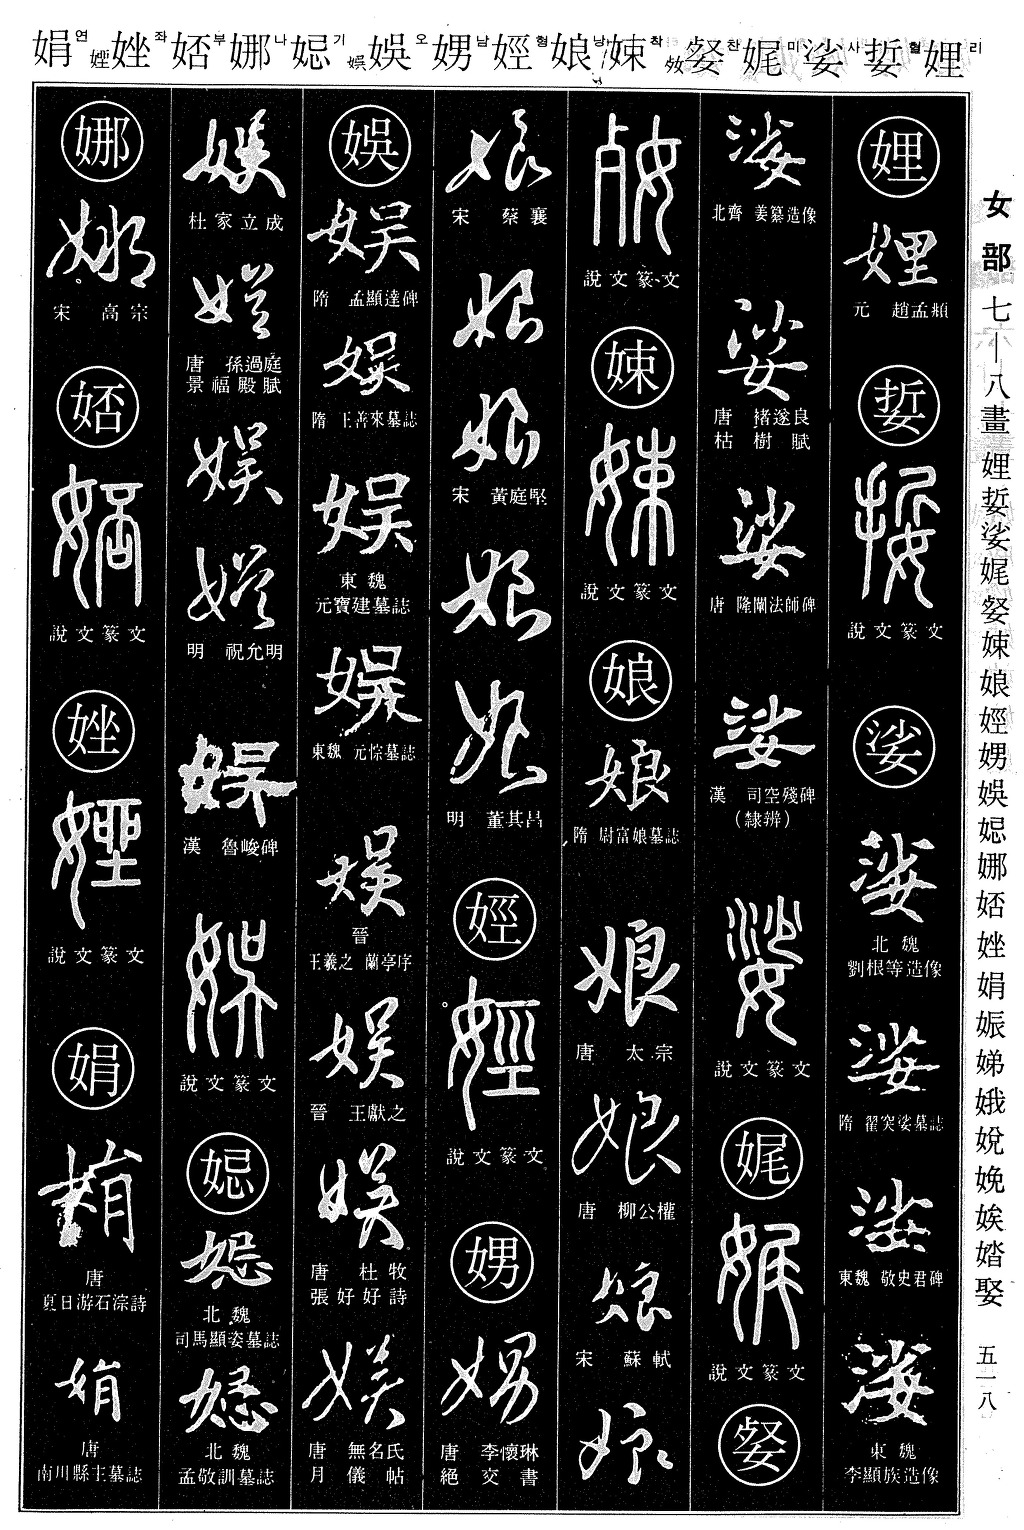 娟연 㛗 㛗좌 㛧부 娜나 㞆기 娯 娛오 娚남 娙형 娘낭 娕착 㛑 㛑찬 娓미 娑사 娎혈 娌리
女部 七—八畫 娌娎娑娓㛑娕娘娙娚娛㞆娜㛧㛗娟娠娣娥娧娩娭婚娶 五一八
娌
娌
元 趙孟頫
娎
娎
說文篆文
娑
娑
北魏
劉根等造像
娑
隋 翟突娑墓誌
娑
東魏 敬史君碑
娑
東魏
李顯族造像
娑
北齊 姜纂造像
娑
唐 褚遂良
枯樹賦
娑
唐 隆闡法師碑
娑
漢 司空殘碑
(隸辨)
娑
說文篆文
娓
娓
說文篆文
㛑
㛑
說文篆文
娕
娕
說文篆文
娘
娘
隋 尉富娘墓誌
娘
唐 太宗
娘
唐 柳公權
娘
宋 蘇軾
娘
娘
宋 蔡襄
娘
娘
宋 黃庭堅
娘
娘
明 董其昌
娙
娙
說文篆文
娚
娚
唐 李懷琳
絕交書
娛
娛
隋 孟顯達碑
娛
隋 王善來墓誌
娛
東魏
元寶建墓誌
娛
東魏 元悰墓誌
娛
晉
王羲之 蘭亭序
娛
晉 王獻之
娛
唐 杜牧
張好好詩
娛
唐 無名氏
月儀帖
娛
杜家立成
娛
唐 孫過庭
景福殿賦
娛
娛
明 祝允明
娛
漢 魯峻碑
娛
說文篆文
北魏
司馬顯姿墓誌
北魏
孟敬訓墓誌
娜
娜
宋 高宗
說文篆文
說文篆文
娟
娟
唐
夏日游石淙詩
娟
唐
南川縣主墓誌